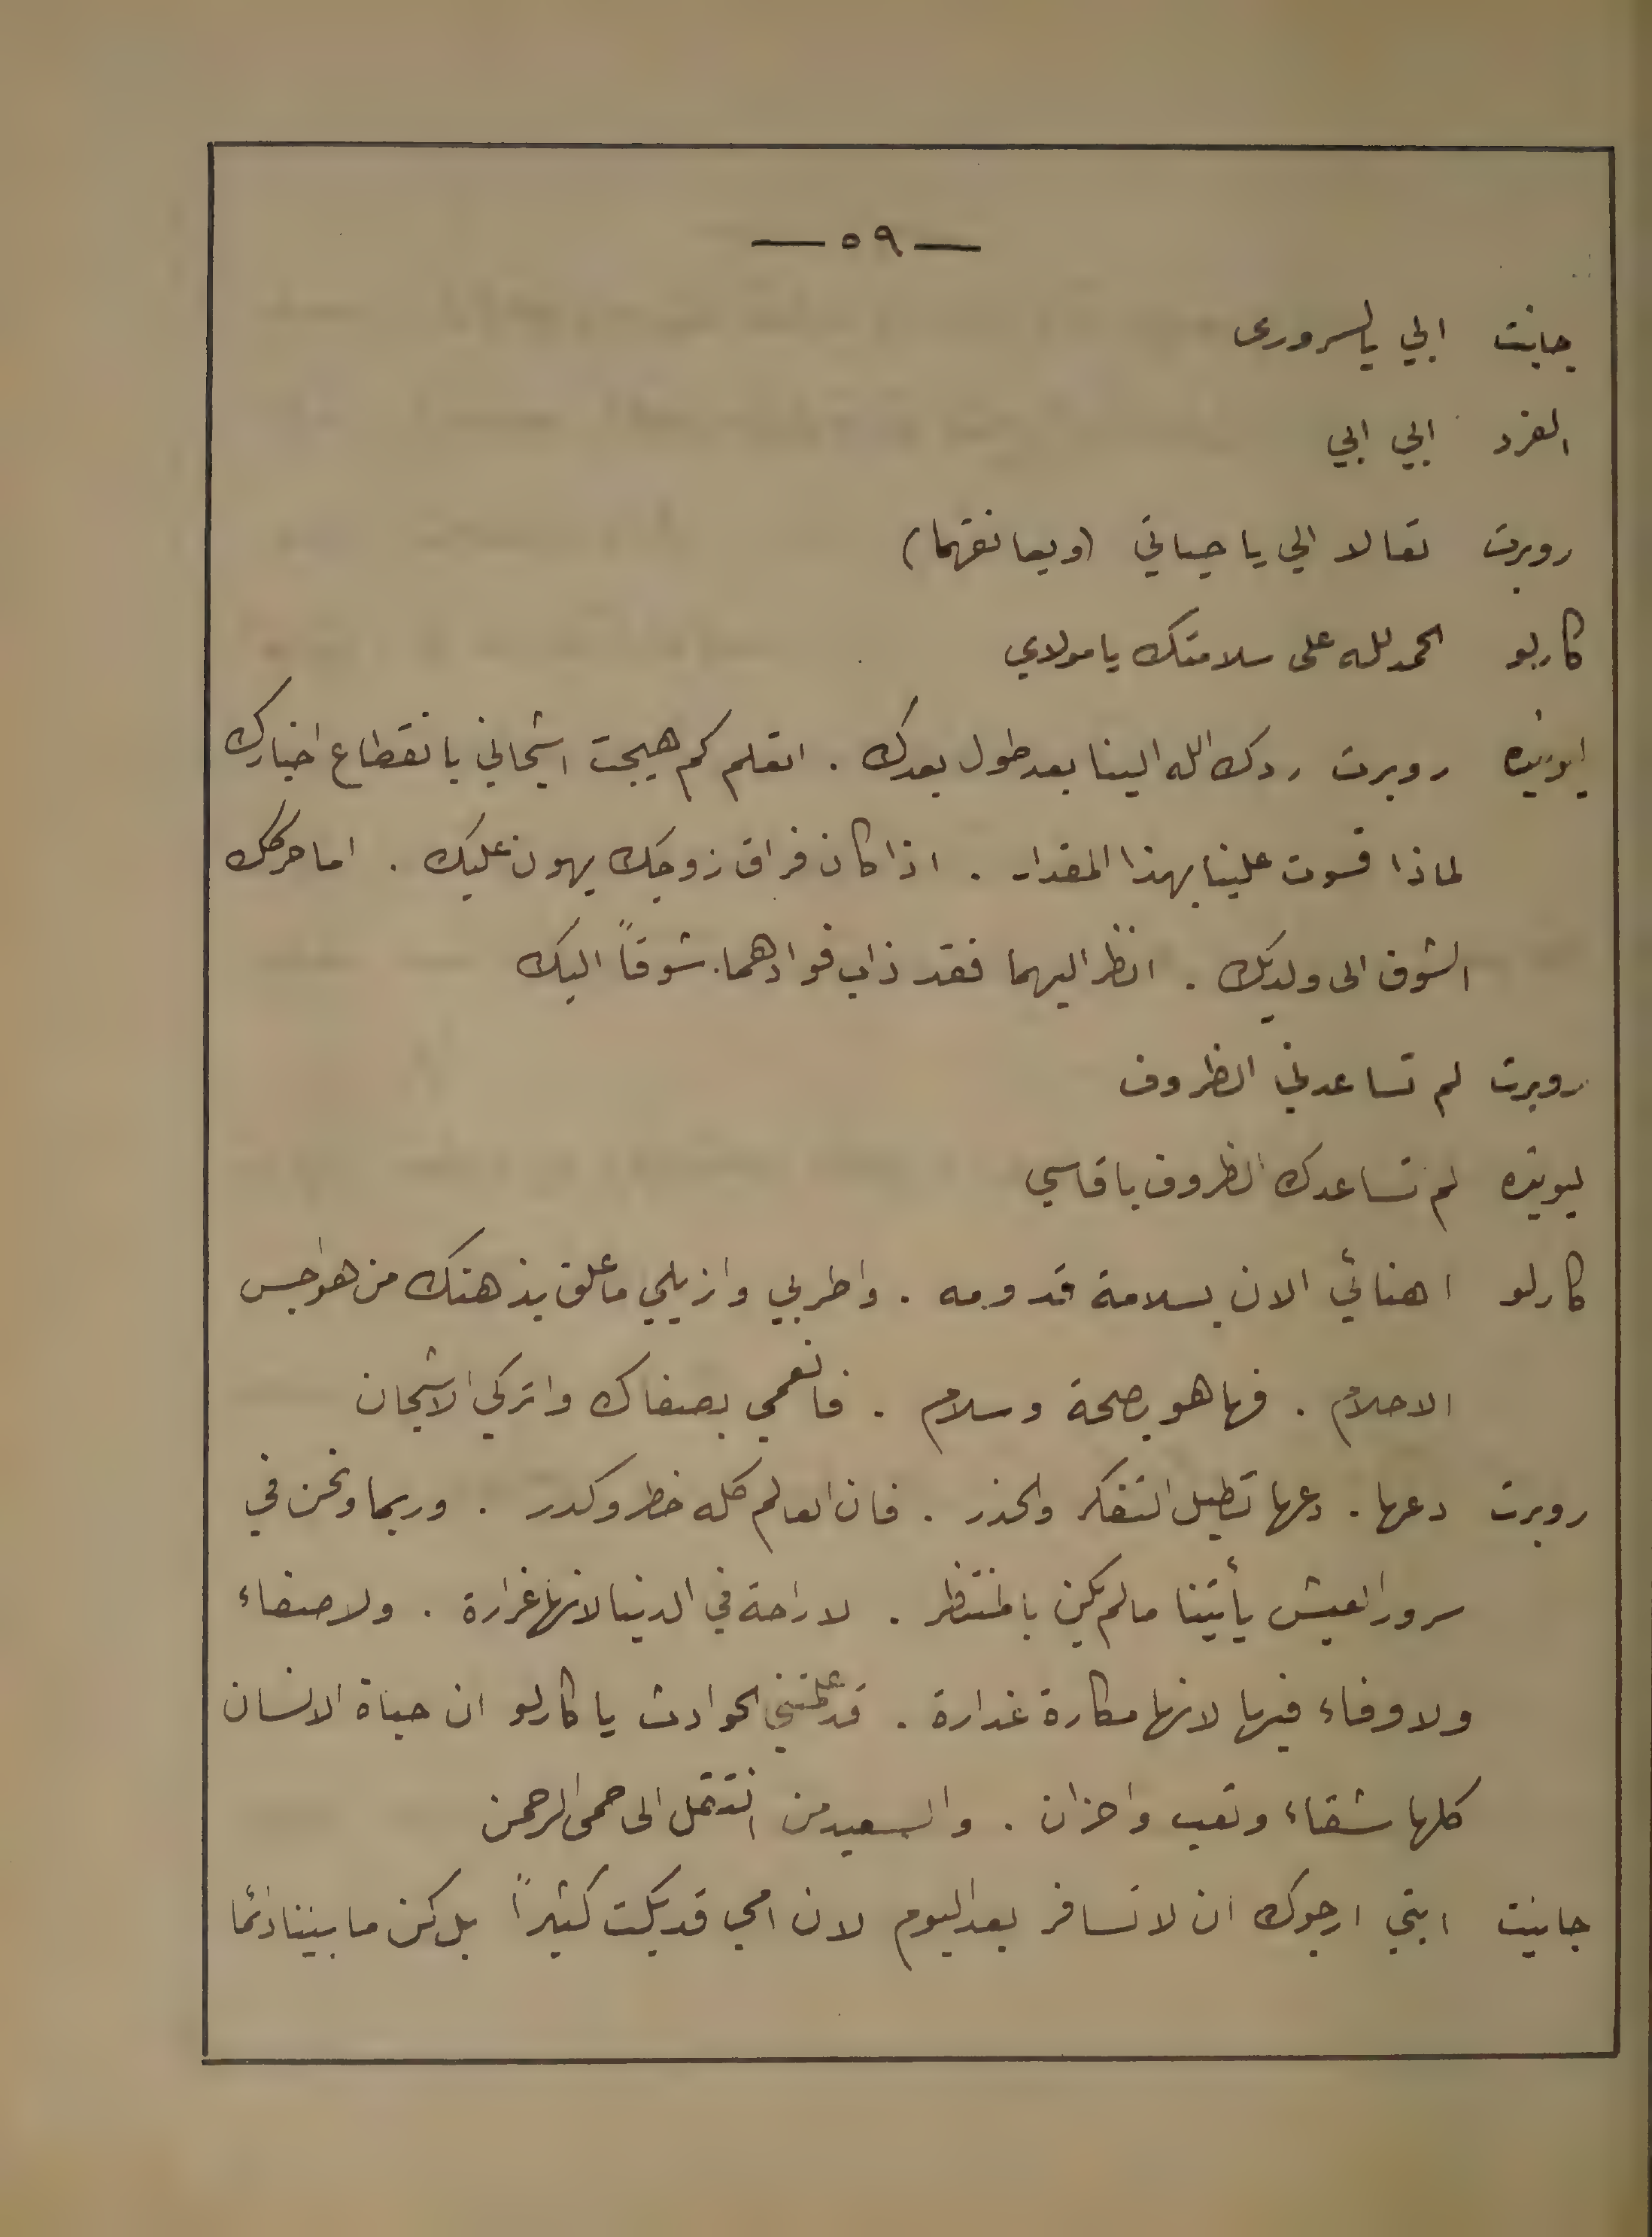 — ٥٩ —
جانيت ابي يالسروري
الفرد ابي ابي
روبرت تعالا الي يا حياتي (ويعانقهما)
كارلو الحمدلله على سلامتك يا مولاي
روبرت ردك الله الينا بعد طول بعدك . اتعلم كم هيجت اشجاني بانقطاع اخبارك
لماذا قسوت علينا بهذا المقدار . اذا كان فراق زوجك يهون عليك . اما حركك
الشوق الى ولديك . انظر اليهما فقد ذاب فوادهما شوقاً اليك
روبرت لم تساعدني الظروف
ليويزه لم تساعدك الظروف يا قاسي
كارلو اهنائي الان بسلامة قدومه . واطربي وازيلي ما علق بذهنك من هواجس
الاحلام . فها هو بصحة وسلام . فانعمي بصفاك واتركي الاشجان
روبرت دعها . دعها تطيل التفكر والحذر . فان العالم كله خطر وكدر . وربما ونحن في
سرور العيش يأتينا مالم يكن بالمنتظر . لا راحة في الدنيا لانها غرارة . ولا صفاء
ولا وفاء فيها لانها مكارة غدارة . قد علمتني الحوادث يا كارلو ان حياة الانسان
كلها شقاء وتعب واحزان . والسعيد من انتقل الى حمى الرحمن
جانيت ابتي ارجوك ان لا تسافر بعد اليوم لان امي قد بكت كثيراً بل كن ما بيننا دائما